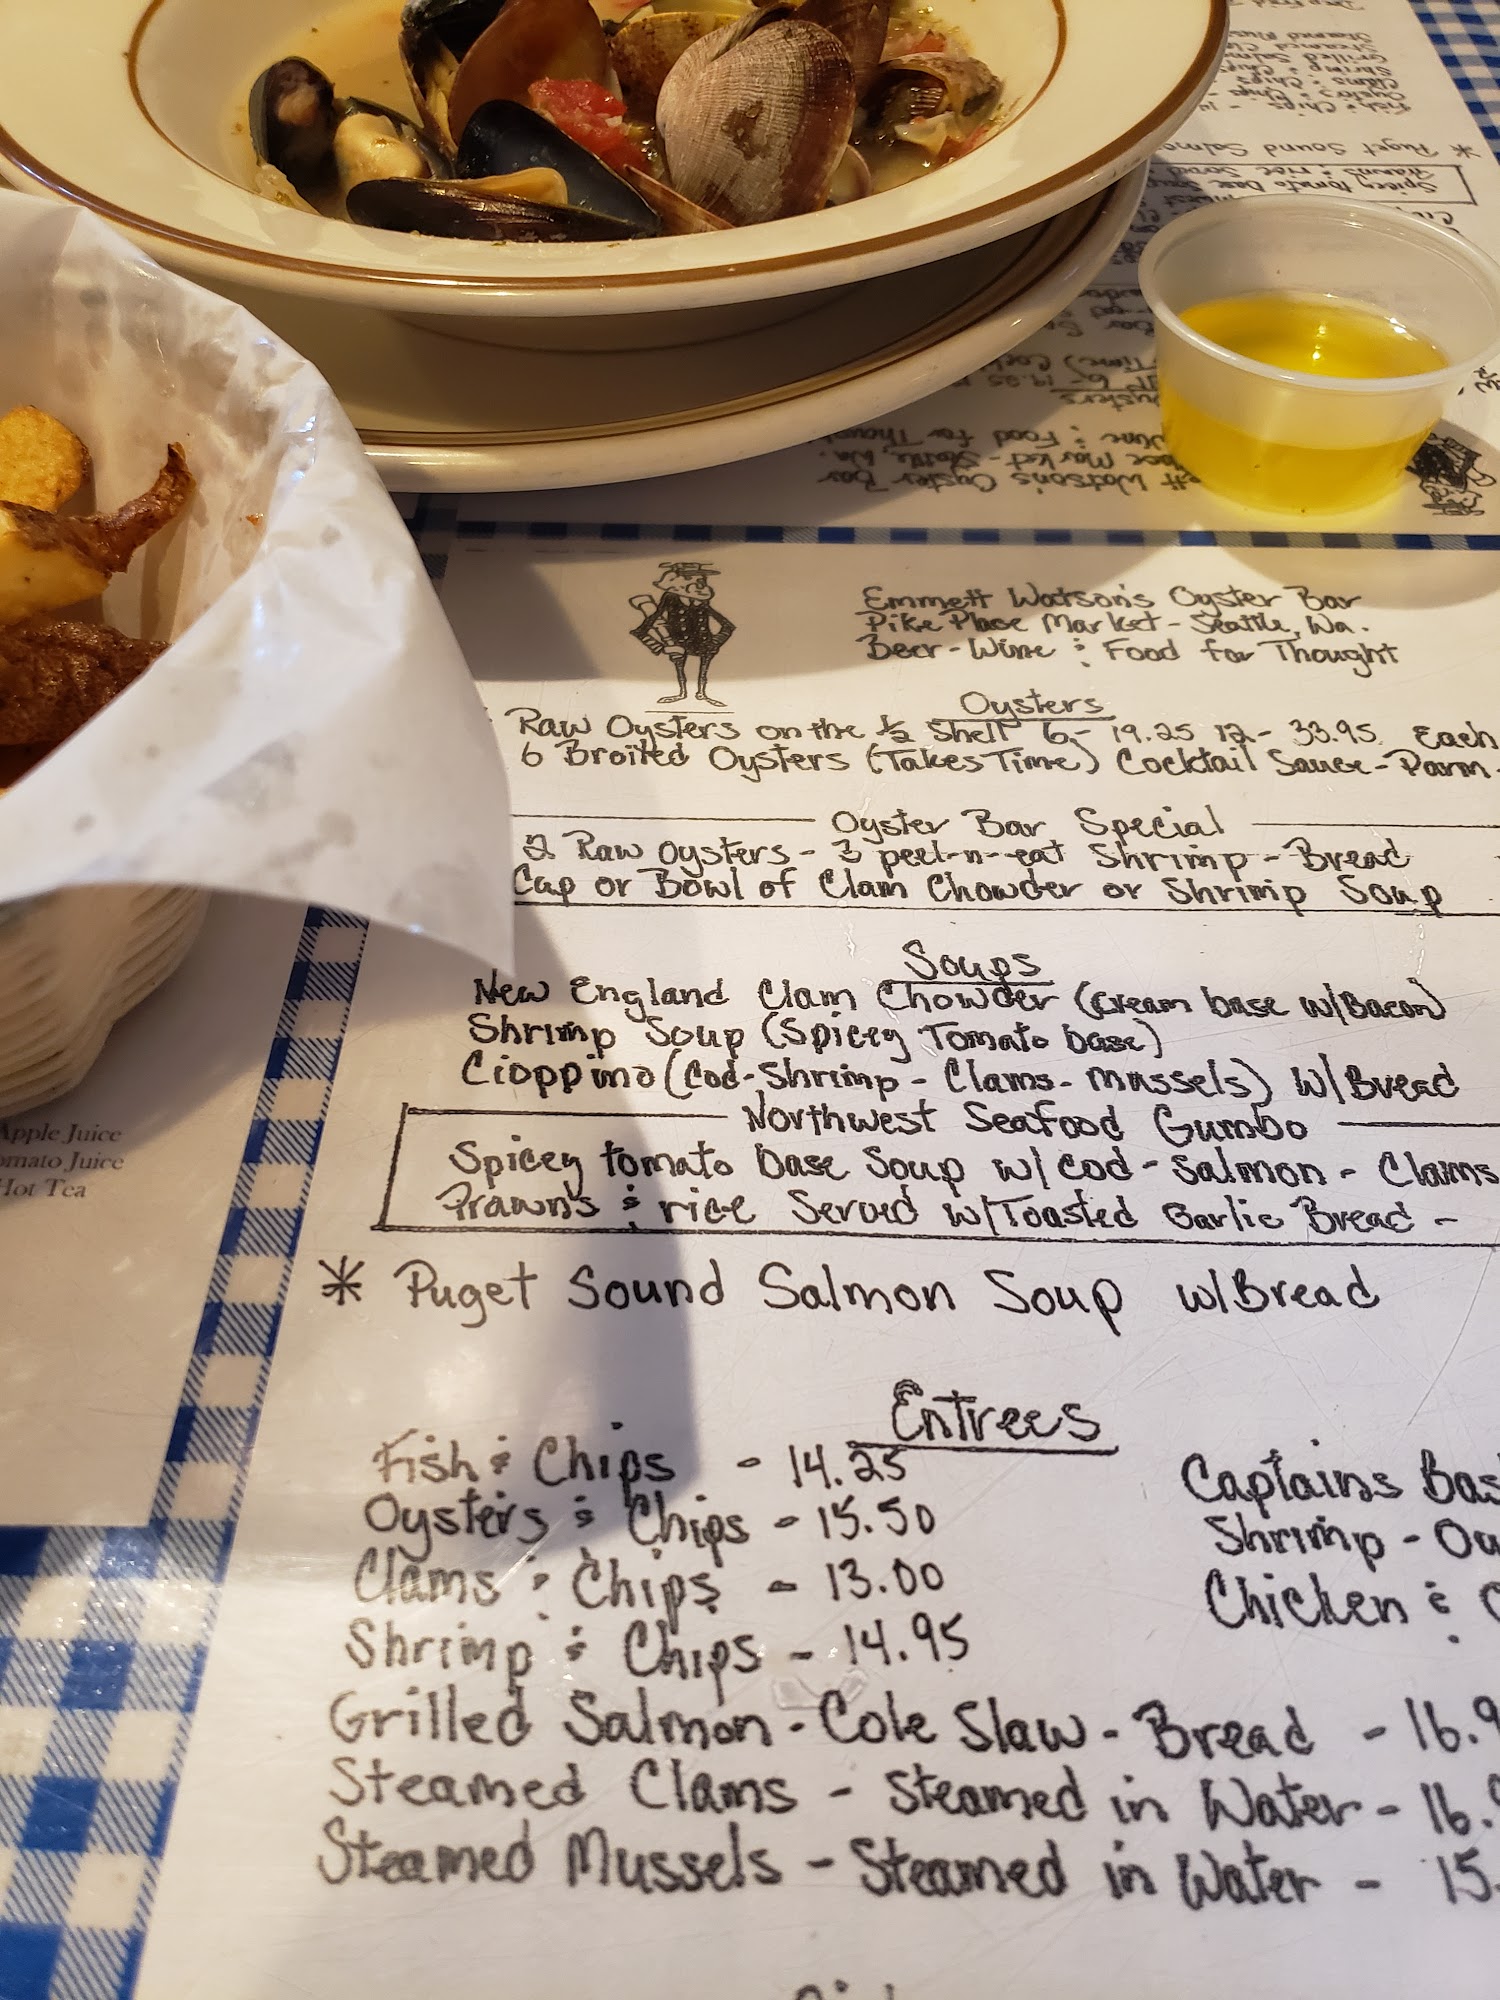 Emmett Watson's Oyster Bar
Pike Place Market - Seattle, Wa.
Beer - Wine & Food for Thought
Oysters
Raw Oysters on the 1/2 Shell 6 - 19.25 12 - 33.95 Each
6 Broiled Oysters (Takes Time) Cocktail Sauce - Parm -
Oyster Bar Special
2 Raw Oysters - 3 peel-n-eat Shrimp - Bread
Cup or Bowl of Clam Chowder or Shrimp Soup
Soups
New England Clam Chowder (Cream base w/Bacon)
Shrimp Soup (Spicey Tomato base)
Cioppino (Cod - Shrimp - Clams - Mussels) w/Bread
Northwest Seafood Gumbo
Spicey tomato base Soup w/ cod - Salmon - Clams
Prawns & rice Served w/Toasted Garlic Bread -
* Puget Sound Salmon Soup w/Bread
Apple Juice
omato Juice
Hot Tea
Entrees
Fish & Chips - 14.25
Oysters & Chips - 15.50
Clams & Chips - 13.00
Shrimp & Chips - 14.95
Captains Bas
Shrimp - Ou
Chicken & C
Grilled Salmon - Cole Slaw - Bread - 16.9
Steamed Clams - Steamed in Water - 16.9
Steamed Mussels - Steamed in Water - 15.